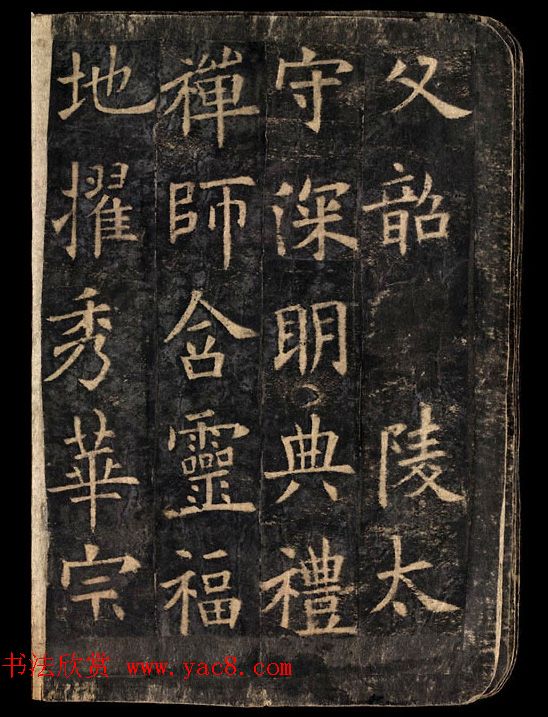 父韶 陵太
守深明典禮
禪師含靈福
地擢秀華宗
书法欣赏 www.yac8.com